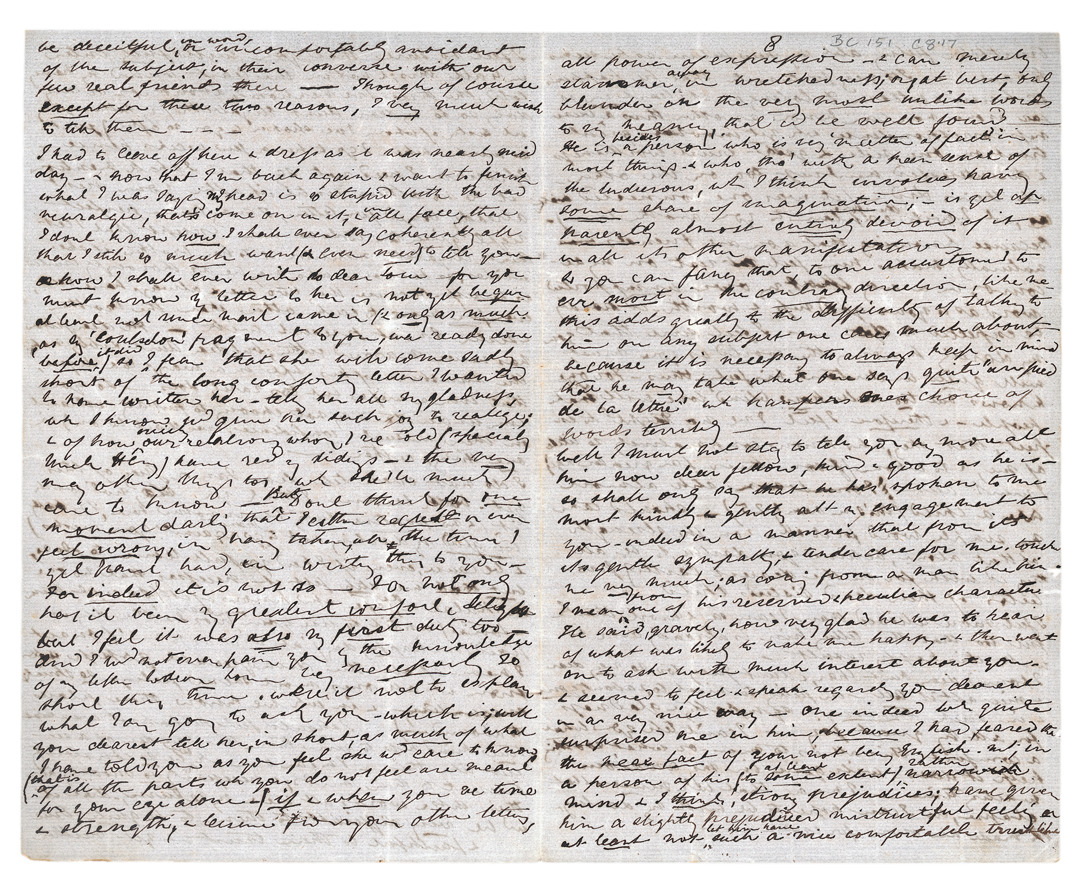 be deceitful, in word, or uncomfortably avoidant
of the subject, in their converse with our
few real friends there — Though of course
except for these two reasons, I very much wish
to tell them - - -
I had to leave off here & dress as it was nearly mid
day — & now that I'm back again & want to finish
what I was saying my head is so stupid with the bad
neuralgia, that's come on in it, & all face, that
I don't know how I shall ever say coherently all
that I still so much want (& even need) to tell you —
or how I shall ever write to dear — for you
must know my letter to her is not yet begun
at least not much more came in (& only as much
as my fragment to you, was ready done
before, it did) so I fear that she will come sadly
short of the long comforty letter I wanted
to have written her — tell her all my gladness,
wh I know wd give her such joy to realize;
& of how much our relations whom I've told (specially
Uncle) have recd my tidings — & the very
many other things too, wh she'll much
care to know — But don't think for one
moment darling that I either regret or even
feel wrong, in having taken, all the time I
yet have had, in writing this to you —
For indeed it is not so — For not only
has it been my greatest comfort & delight
but I feel it was also my first duty too
and I wd not even pain you by the knowledge
of my
short this time, were it not to explain
what I am going to ask you — which is, will
you dearest tell her, in short, as much of what
I have told you as you feel she wd care to know
(that is of all the parts wh you do not feel are meant
for your eye alone — (if & when you've time
& strength, & leisure from your other letters,
8 BC 151 C817
all power of expression — & can merely
stammer away in wretchedness, or at best, only
blunder on the very most unlike words
to my meaning, that cd be well found —
He is besides a person, who is vy matter of fact in
most things & who tho' with a keen sense of
the ludicrous, wh I think involves having
some share of imagination, — is yet ap
parently almost entirely devoid of it
in all its other manifestations
So you can fancy that, to one accustomed to
err most in the contrary direction, like me
this adds greatly to the difficulty of talking to
him on any subject one cares much about
because it is necessary to always keep in mind
that he may take what one says quite "au pied
de la lettre" wh hampers one's choice of
words terribly —
Well I must not stay to tell you any more abt
him now dear fellow, kind & good as he is —
so shall only say that he has spoken to me
most kindly & gently abt my engagement to
you — indeed in a manner that from its
gentle sympathy, & tender care for me, touched
me very much, as coming from a man like him
I mean from one of his reserved & peculiar character
He said, gravely, how very glad he was to hear
of what was likely to make me happy — & then went
on to ask with much interest about you —
& seemed to feel & speak regarding you dearest
in a very nice way — one indeed wh quite
surprised me in him, because I had feared the
the near fact of your not being English, might in
a person of his (to some extent at least) rather narrowish
mind & I think, strong prejudices, have given
him a slightly prejudiced mistrustful feeling, or
at least not let him have such a nice comfortable trust like